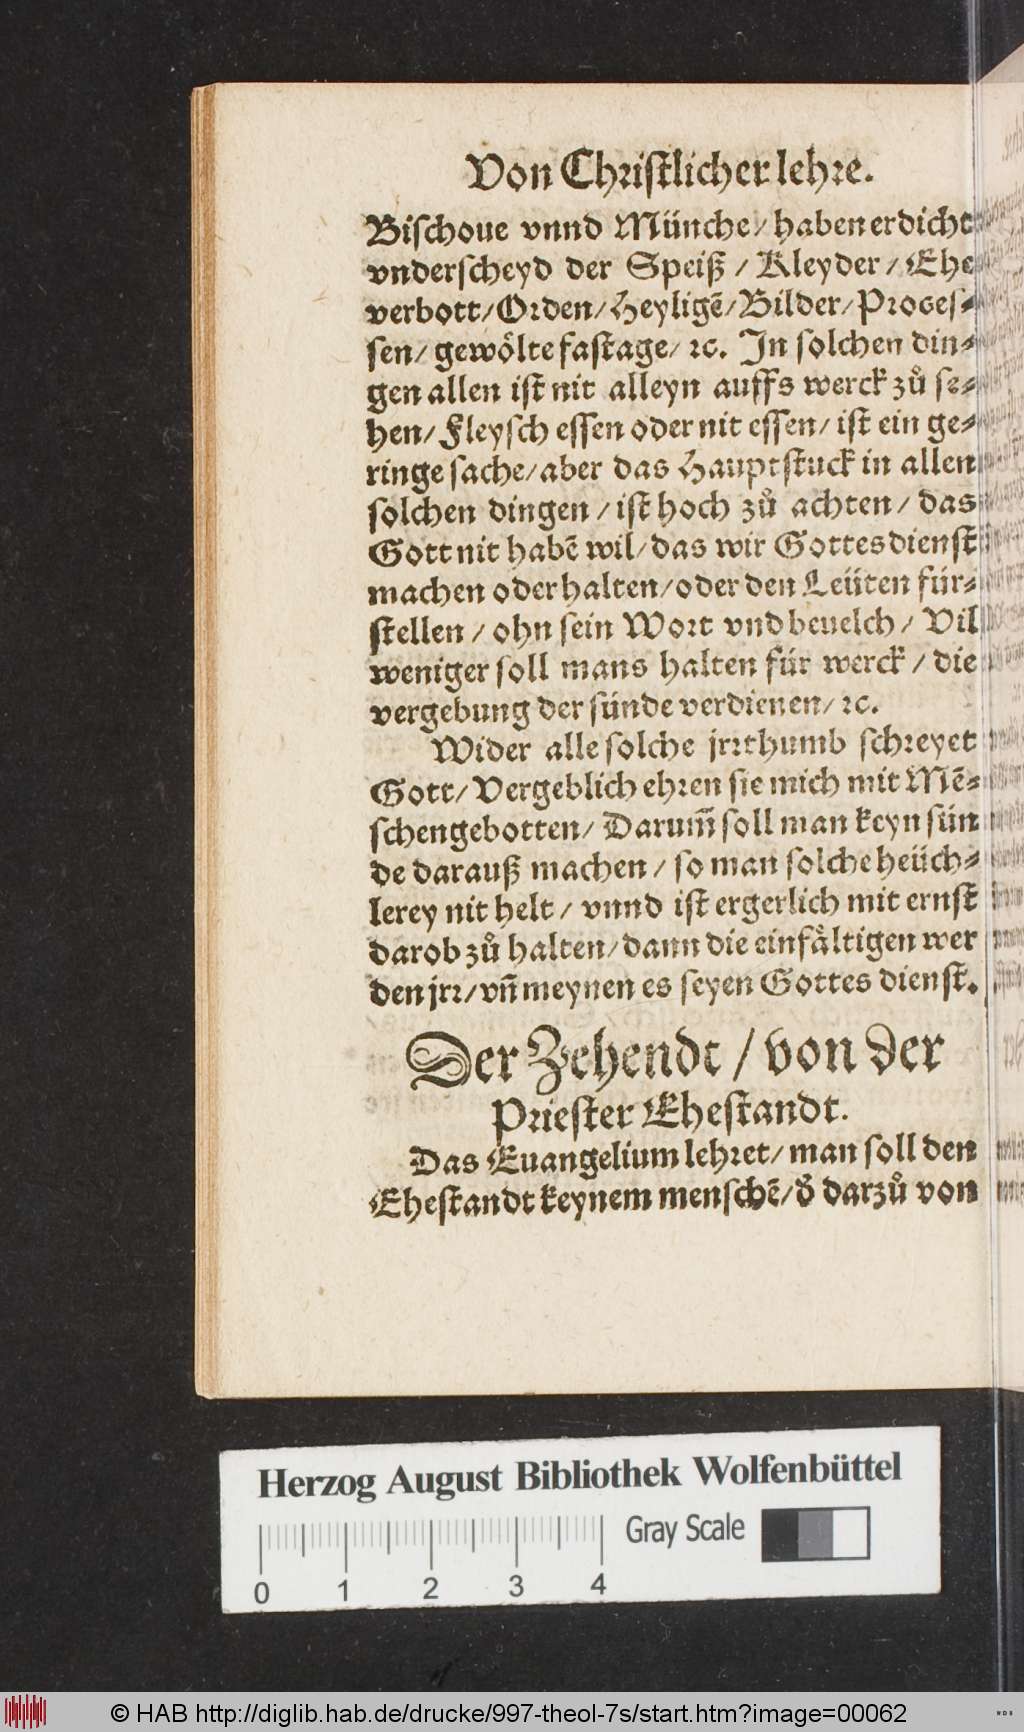 Von Christlicher lehre.
Bischoue vnnd Münche / haben erdicht
vnderscheyd der Speiß / Kleyder / Ehe
verbott / Orden / Heyligẽ / Bilder / Proces⸗
sen / gewoͤlte fastage / ꝛc. In solchen din⸗
gen allen ist nit alleyn auffs werck zuͦ se⸗
hen / Fleysch essen oder nit essen / ist ein ge⸗
ringe sache / aber das Hauptstuck in allen
solchen dingen / ist hoch zuͦ achten / das
Gott nit habẽ wil / das wir Gottesdienst
machen oder halten / oder den Leüten für⸗
stellen / ohn sein Wort vnd beuelch / Vil
weniger soll mans halten für werck / die
vergebung der sünde verdienen / ꝛc.
Wider alle solche jrrthumb schreyet
Gott / Vergeblich ehren sie mich mit Mẽ⸗
schengebotten / Darum̃ soll man keyn sün
de darauß machen / so man solche heüch⸗
lerey nit helt / vnnd ist ergerlich mit ernst
darob zuͦ halten / dann die einfaͤltigen wer
den jrr / vñ meynen es seyen Gottes dienst.
Der Zehendt / von der
Priester Ehestandt.
Das Euangelium lehret / man soll den
Ehestandt keynem menschẽ / d̓ darzuͦ von
Herzog August Bibliothek Wolfenbüttel
Gray Scale
0 1 2 3 4
© HAB http://diglib.hab.de/drucke/997-theol-7s/start.htm?image=00062